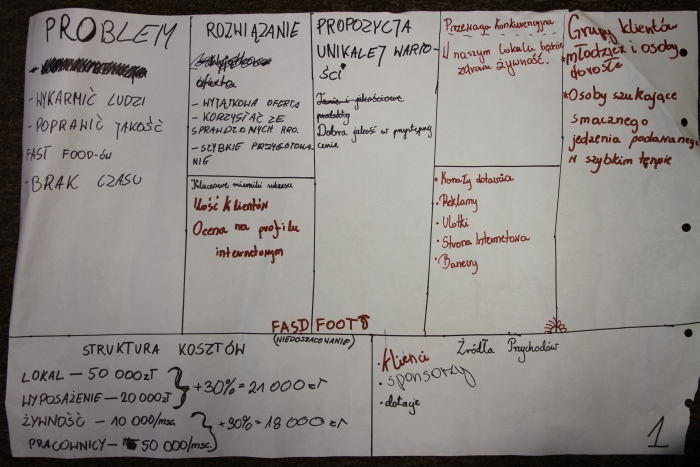 PROBLEM
- WYKARMIĆ LUDZI
- POPRAWIĆ JAKOŚĆ
FAST FOOD-ÓW
- BRAK CZASU
ROZWIĄZANIE
oferta
- WYJĄTKOWA OFERTA
- KORZYSTAĆ ZE
SPRAWDZONYCH PRO.
- SZYBKIE PRZYGOTOWA
NIE
Kluczowe mierniki sukcesu
Ilość klientów
Ocena na profilu
internetowym
PROPOZYCJA
UNIKALEJ WARTO-
ŚCI
Tanie i jakościowe
produkty
Dobra jakość w przystępnej
cenie
Przewaga konkurencyjna
W naszym lokalu będzie
zdrowa żywność.
• Kanały dotarcia
• Reklamy
• Ulotki
• Strona Internetowa
• Banery
Grupy klientów
*młodzież i osoby
dorosłe
*Osoby szukające
smacznego
jedzenia podawanego
w szybkim tempie
FASD FOOTS
(NIEDOSZACOWANIE)
STRUKTURA KOSZTÓW
LOKAL — 50 000zł
WYPOSAŻENIE — 20 000zł
+30% = 21 000 zł
ŻYWNOŚĆ — 10 000/msc.
PRACOWNICY — 50 000/msc.
+30% = 18 000 zł
Źródła Przychodów
• klienci
• sponsorzy
• dotacje
1